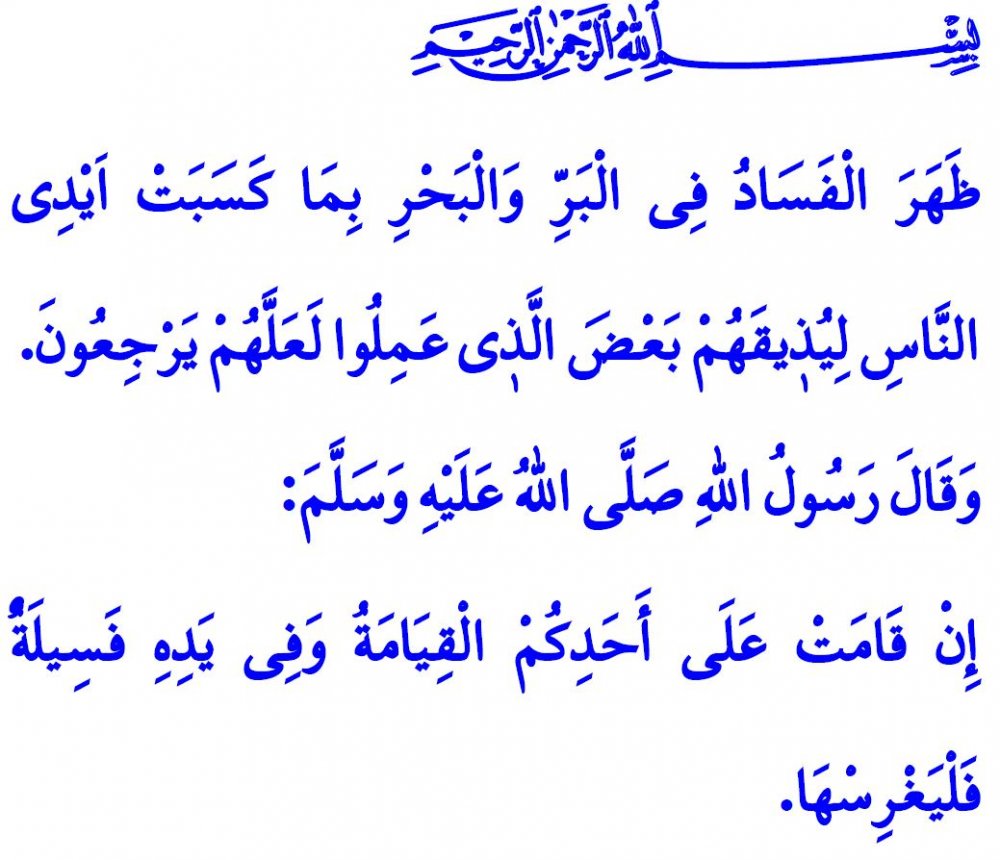 بِسْمِ اللهِ الرَّحْمٰنِ الرَّحِيمِ
ظَهَرَ الْفَسَادُ فِى الْبَرِّ وَالْبَحْرِ بِمَا كَسَبَتْ اَيْدِى
النَّاسِ لِيُذ۪يقَهُمْ بَعْضَ الَّذ۪ى عَمِلُوا لَعَلَّهُمْ يَرْجِعُونَ.
وَقَالَ رَسُولُ اللهِ صَلَّى اللهُ عَلَيْهِ وَسَلَّمَ:
إِنْ قَامَتْ عَلَى أَحَدِكُمْ الْقِيَامَةُ وَفِى يَدِهِ فَسِيلَةٌ
فَلْيَغْرِسْهَا.